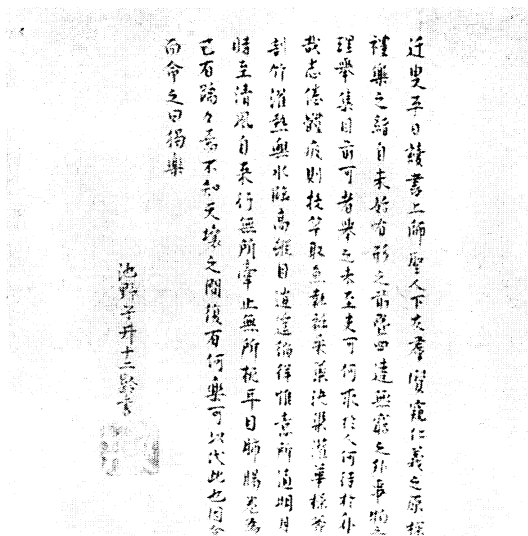 迂叟平日讀書上師聖人下友群賢窺仁義之原探
禮樂之緒自未始有形之前曁四達無窮之外事物之
理舉集目前可者學之未至夫可何求於人何待於外
哉志倦體疲則投竿取魚執衽采藥決渠灌華操斧
剖竹濯熱盥水臨高縱目逍遙徜徉惟意所適明月
時至清風自来行無所牽止無所柅耳目肺腸卷為
己有踽々焉不知天壤之間復有何樂可以代此也因合
而命之曰獨樂
池野学舟十二齡書